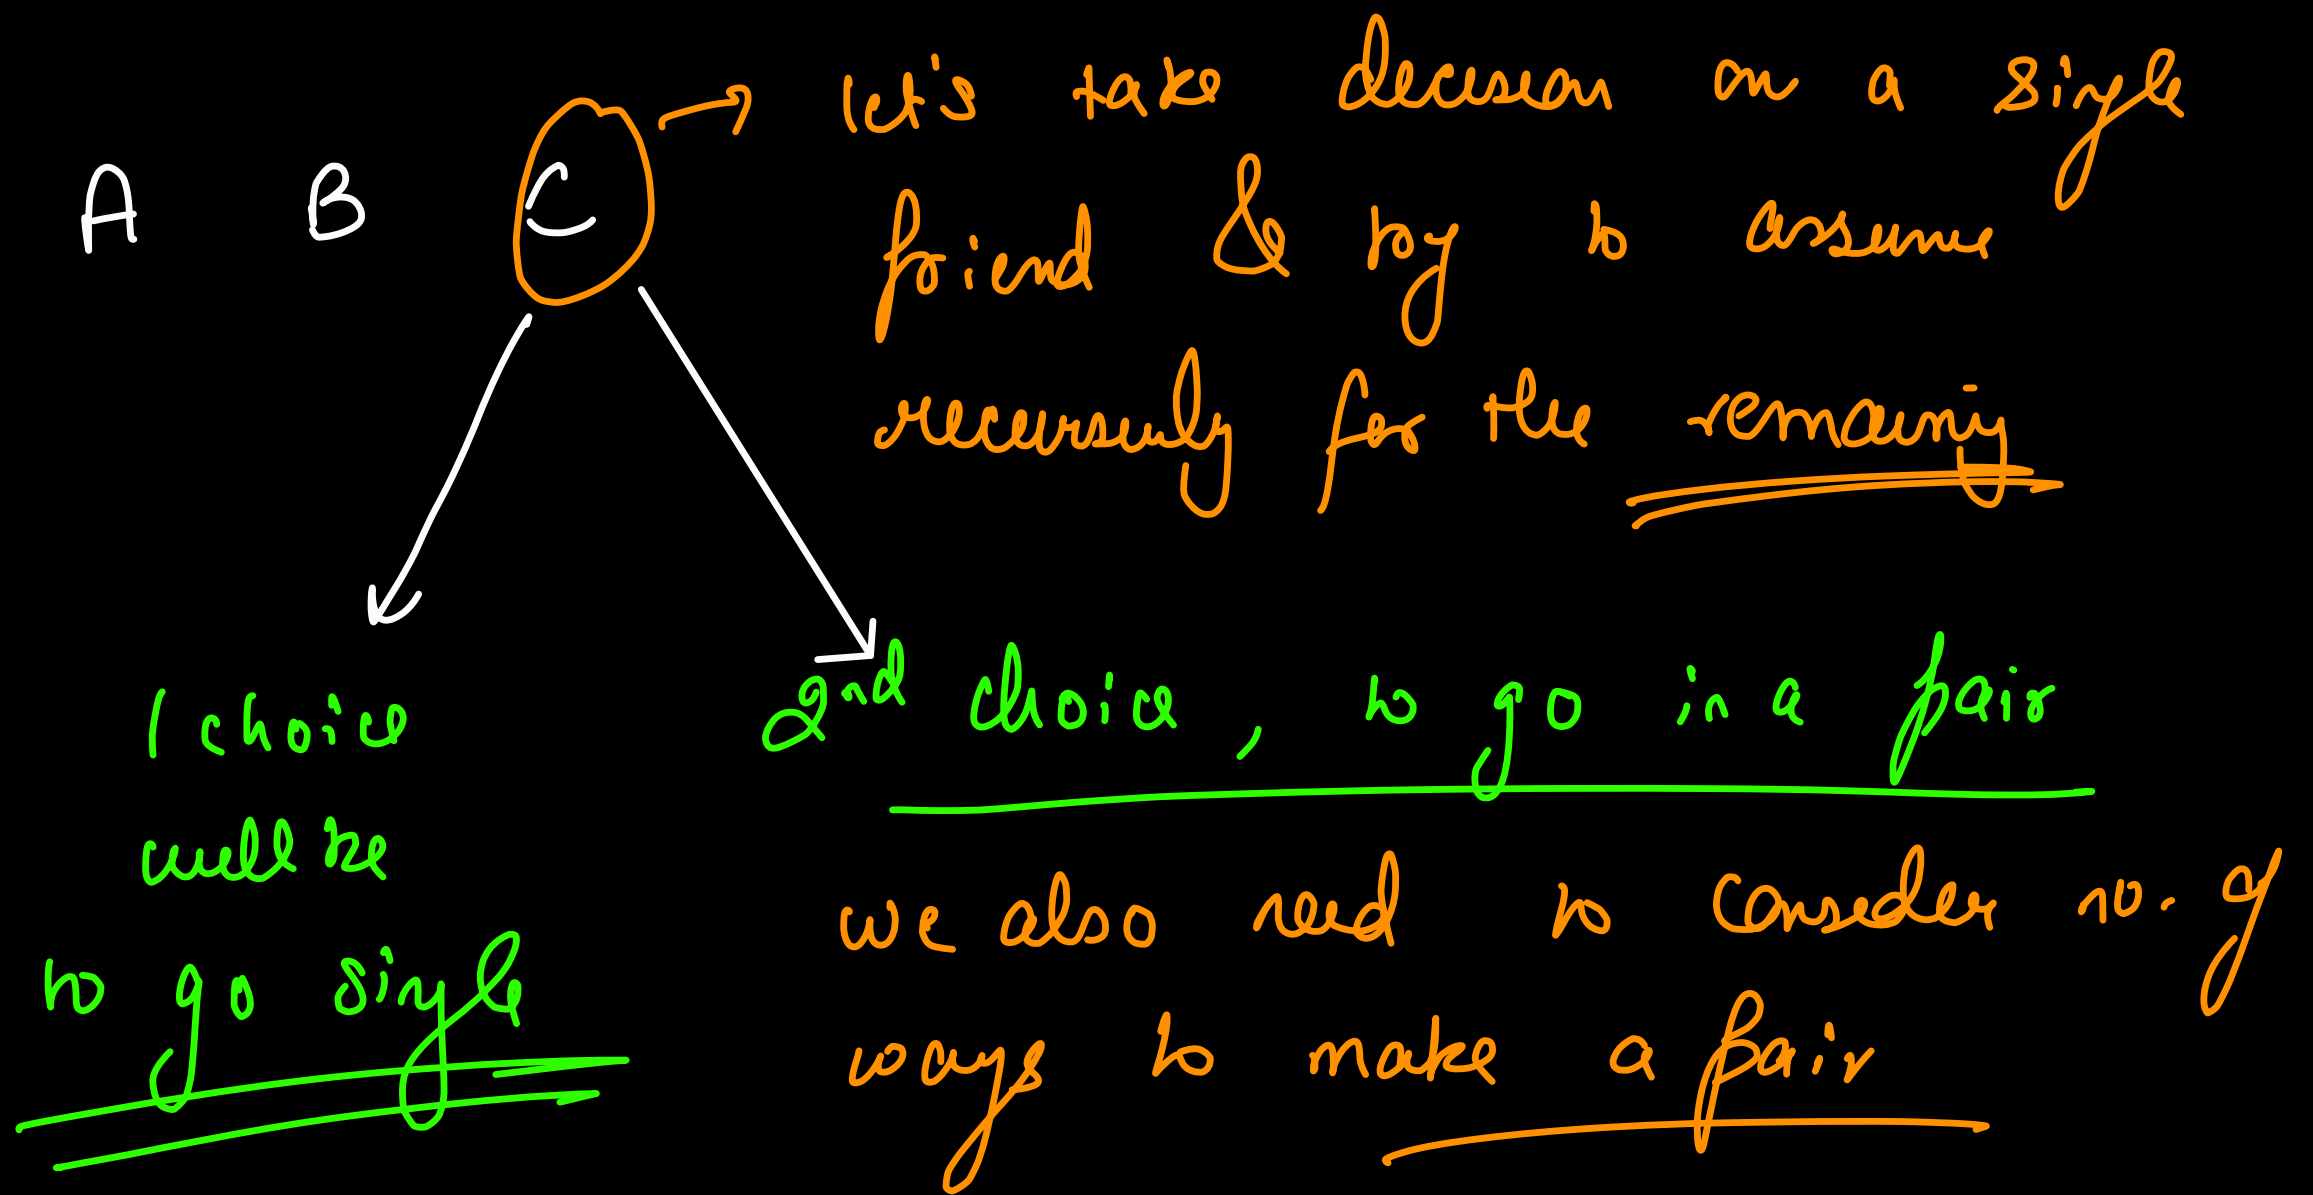 A B C → let's take decision on a single
friend & try to assume
recursively for the remaining
1 choice
will be
to go single
2nd choice, to go in a pair
we also need to consider no. of
ways to make a pair